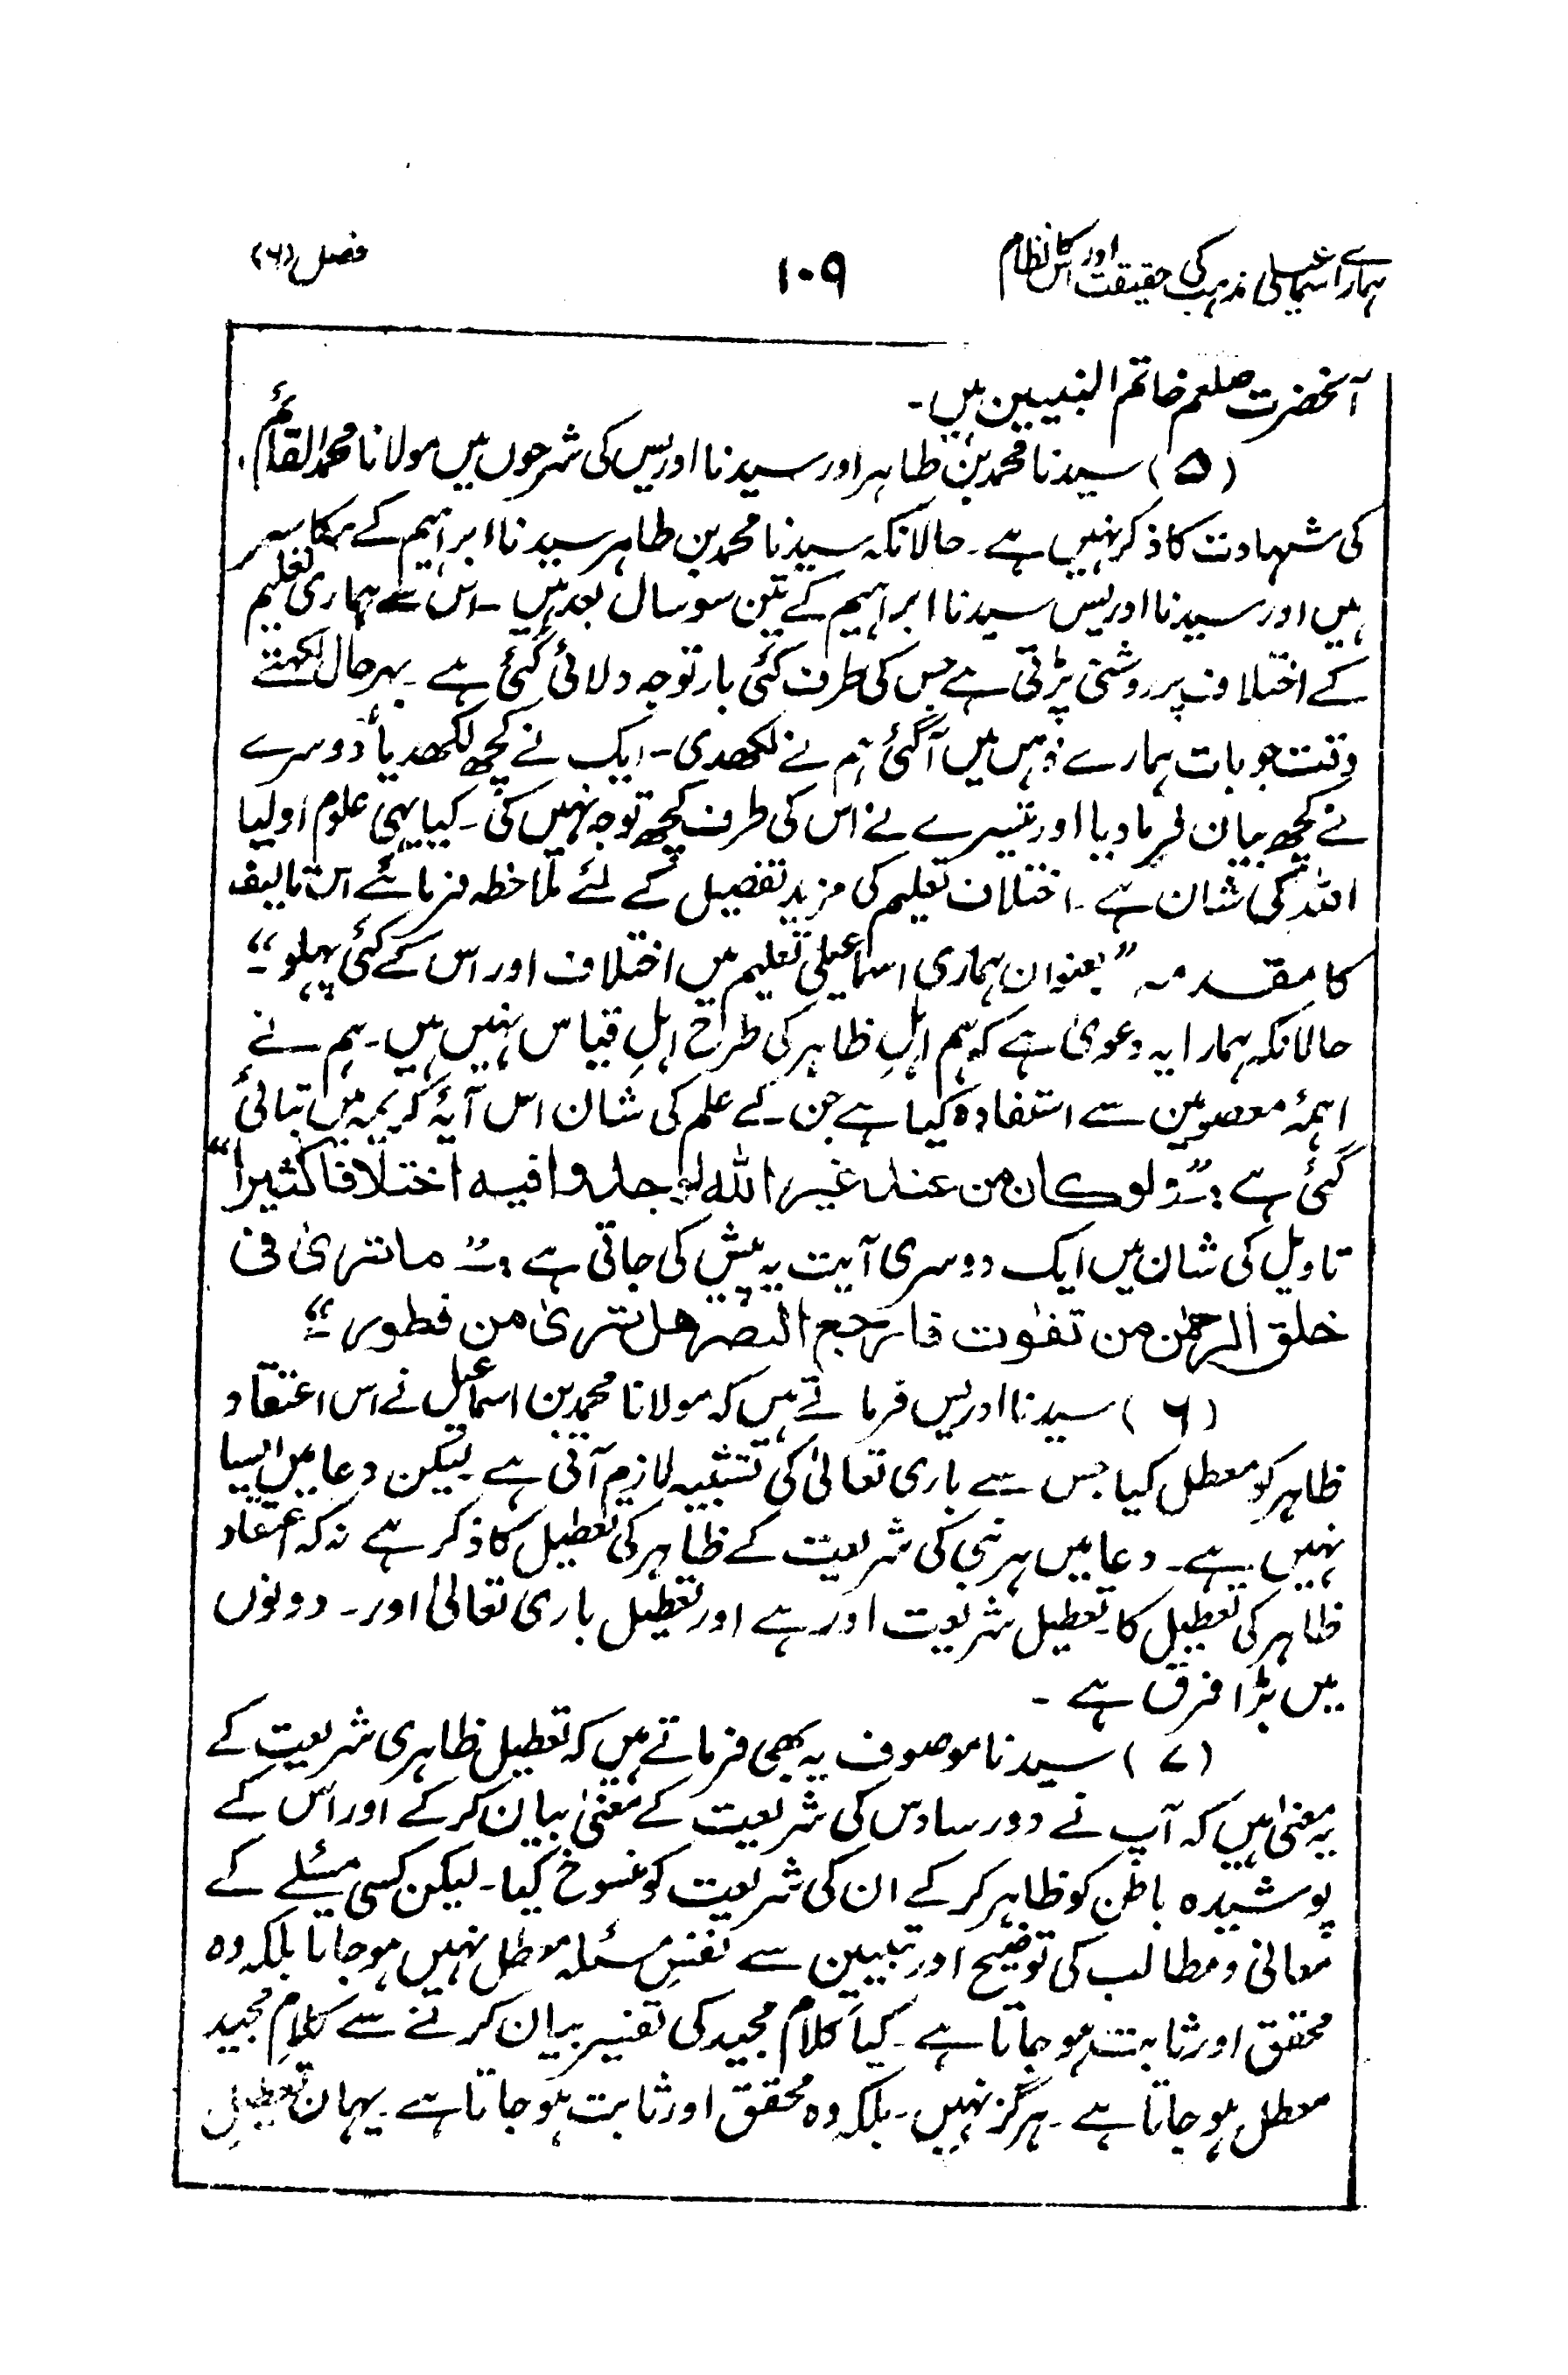 ہمارے اسماعیلی مذہب کی حقیقت اور اس کا نظام ۱۰۹ فصل (۶)
آنحضرت صلعم خاتم النبیین ہیں۔
(۵) سیدنا محمد بن طاہر اور سیدنا ادریس کی شرحوں میں مولانا محمد القائم
کی شہادت کا ذکر نہیں ہے۔ حالانکہ سیدنا محمد بن طاہر سیدنا ابراہیم کے ہمعاصر
ہیں اور سیدنا ادریس سیدنا ابراہیم کے تین سو سال بعد ہیں۔ اس سے ہماری تعلیم
کے اختلاف پر روشنی پڑتی ہے جس کی طرف کئی بار توجہ دلائی گئی ہے۔ بہرحال لکھتے
وقت جو بات ہمارے ذہن میں آگئی ہم نے لکھدی۔ ایک نے کچھ لکھدیا دوسرے
نے کچھ بیان فرما دیا اور تیسرے نے اس کی طرف کچھ توجہ نہیں کی۔ کیا یہی علوم اولیا
اللہ کی شان ہے۔ اختلاف تعلیم کی مزید تفصیل کے لئے ملاحظہ فرمائے اس تالیف
کا مقدمہ ”بعنوان ہماری اسماعیلی تعلیم میں اختلاف اور اس کے کئی پہلو“۔
حالانکہ ہمارا یہ دعویٰ ہے کہ ہم اہلِ ظاہر کی طرح اہلِ قیاس نہیں ہیں۔ ہم نے
ائمۂ معصومین سے استفادہ کیا ہے جن کے علم کی شان اس آیۂ کریمہ میں بتائی
گئی ہے :۔ ”ولو كان من عند غير الله لوجدوا فيه اختلافا كثيرا“
تاویل کی شان میں ایک دوسری آیت یہ پیش کی جاتی ہے :۔ ”ما ترىٰ فی
خلق الرحمٰن من تفٰوت فارجع البصر هل ترىٰ من فطور“۔
(۶) سیدنا ادریس فرماتے ہیں کہ مولانا محمد بن اسماعیل نے اس اعتقاد
ظاہر کو معطل کیا جس سے باری تعالیٰ کی تشبیہ لازم آتی ہے۔ لیکن دعا میں ایسا
نہیں ہے۔ دعا میں ہر نبی کی شریعت کے ظاہر کی تعطیل کا ذکر ہے نہ کہ اعتقاد
ظاہر کی تعطیل کا۔ تعطیل شریعت اور ہے اور تعطیل باری تعالیٰ اور۔ دونوں
میں بڑا فرق ہے۔
(۷) سیدنا موصوف یہ بھی فرماتے ہیں کہ تعطیل ظاہری شریعت کے
یہ معنیٰ ہیں کہ آپ نے دور سادس کی شریعت کے معنیٰ بیان کرکے اور اس کے
پوشیدہ باطن کو ظاہر کرکے ان کی شریعت کو منسوخ کیا۔ لیکن کسی مسئلے کے
معانی و مطالب کی توضیح اور تبیین سے نفسِ مسئلہ معطل نہیں ہوجاتا بلکہ وہ
محقق اور ثابت ہو جاتا ہے۔ کیا کلام مجید کی تفسیر بیان کرنے سے کلامِ مجید
معطل ہو جاتا ہے۔ ہرگز نہیں۔ بلکہ وہ محقق اور ثابت ہو جاتا ہے۔ یہاں تعطیلِ